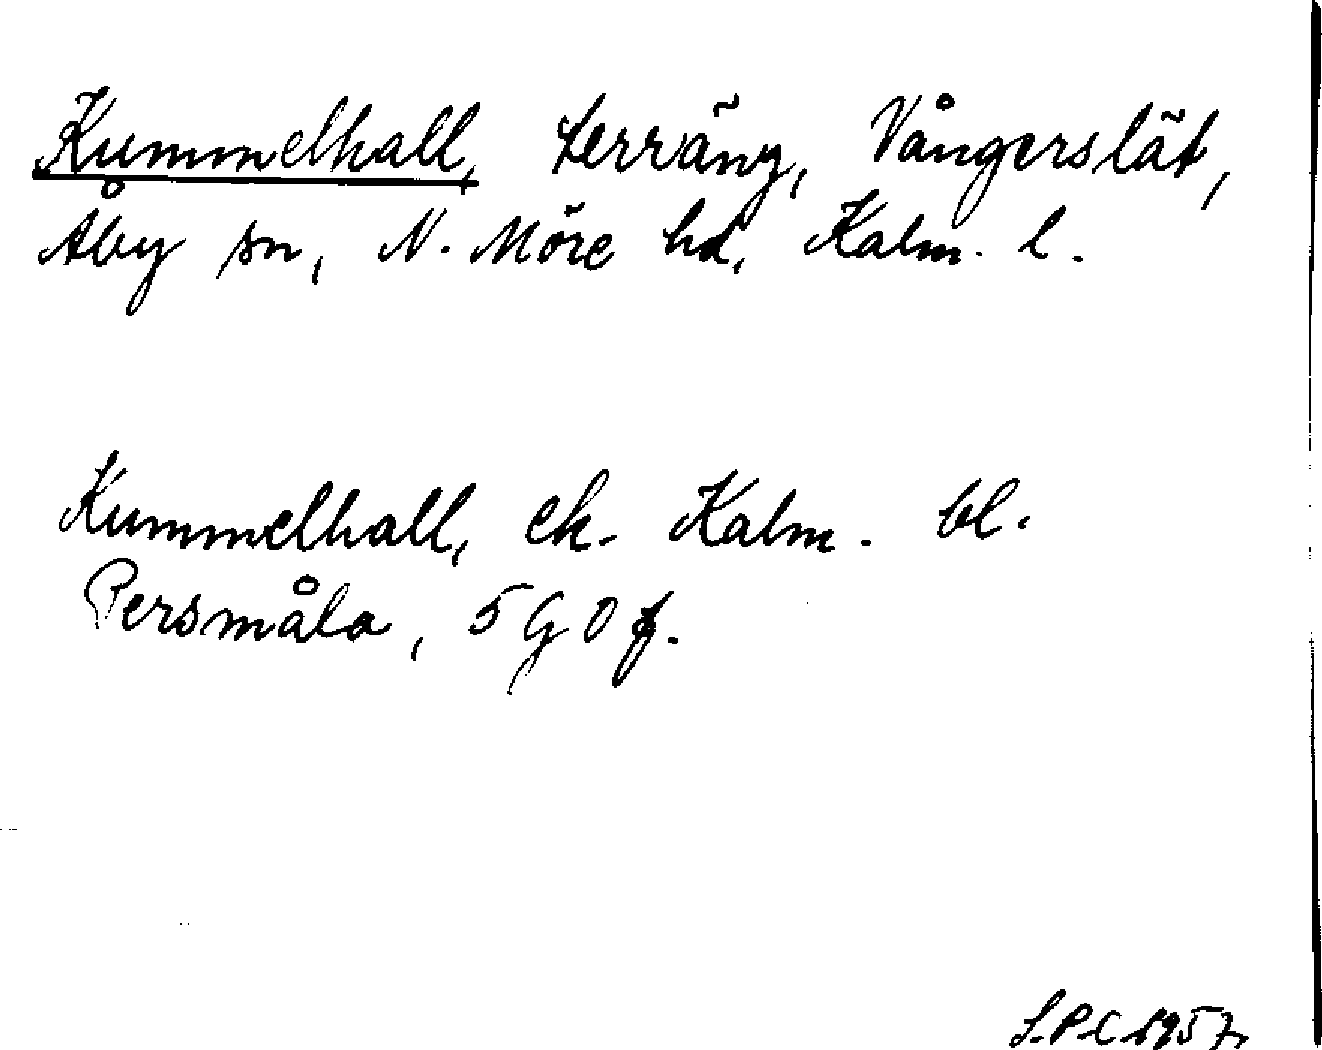 Kummelhall, terräng, Vångerslät,
Åby sn, N. Möre hd, Kalm. l.
Kummelhall, ek. Kalm. bl.
Persmåla, 5 G 0 f.
S.P-C 1957